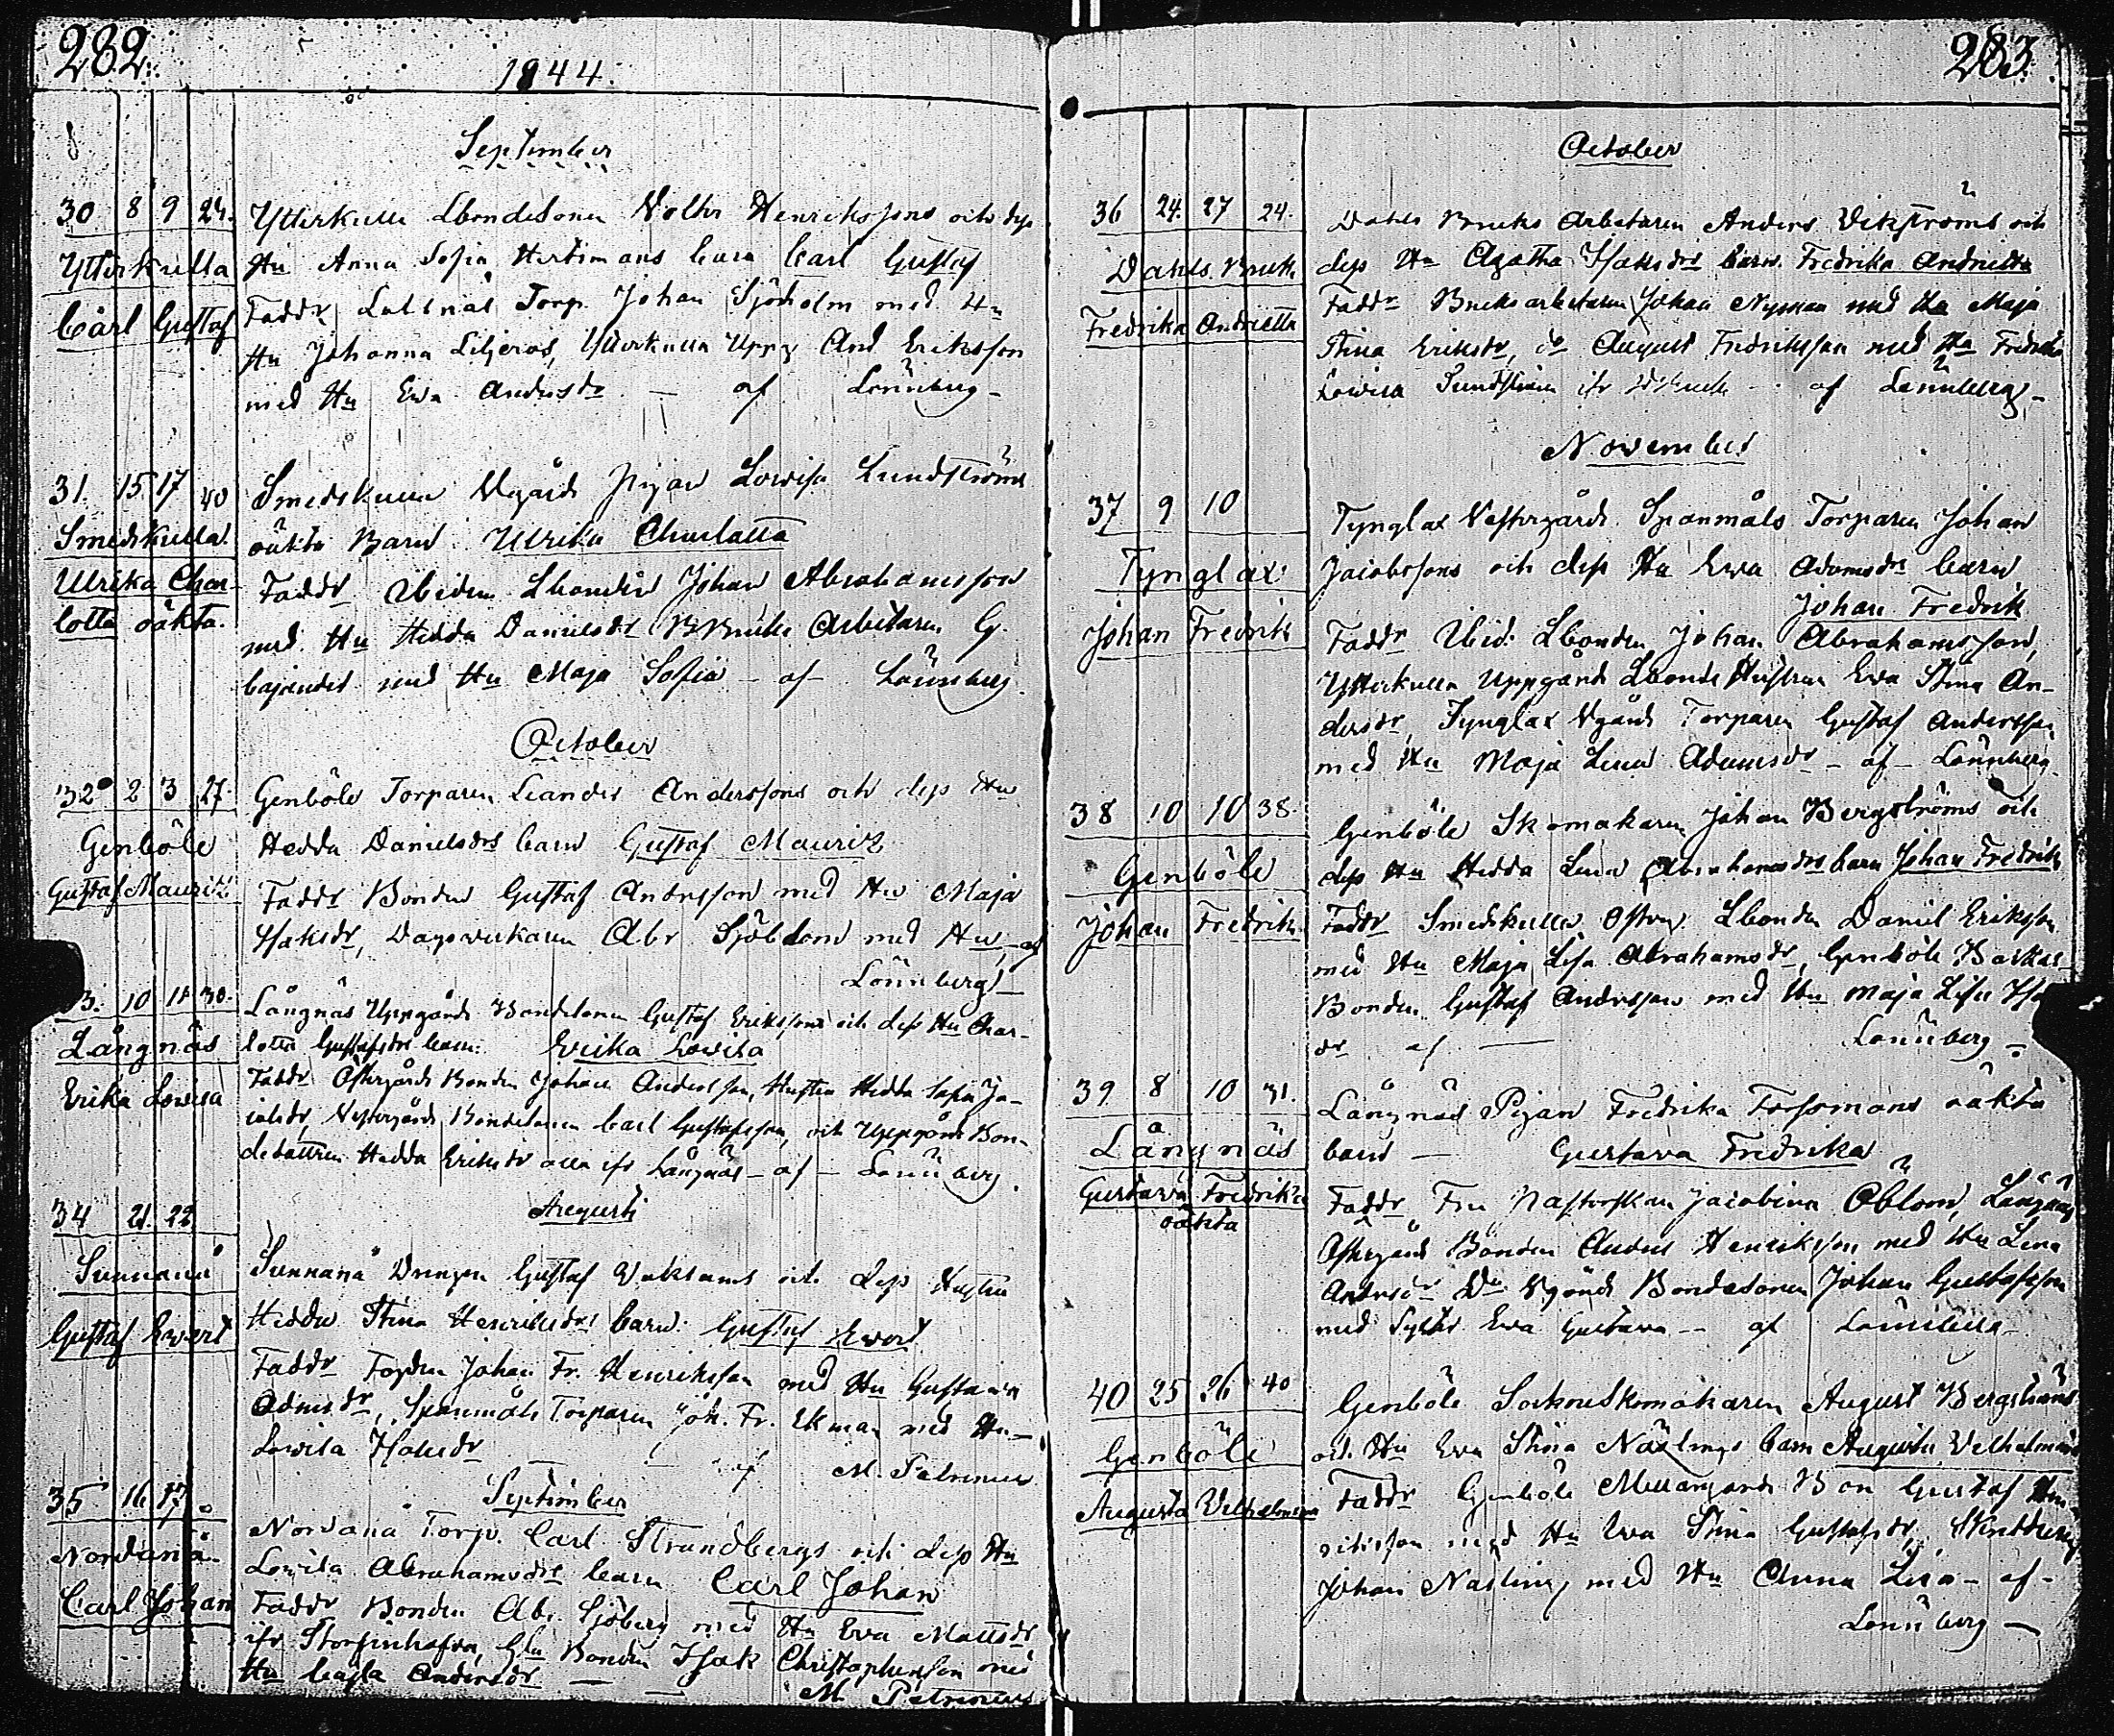 282.
1844.
September
30 8 9 24.
Ytterkulla
Carl Gustaf
Ytterkulla Lbondesonen Henrikssons och dess
Hu Anna Sofia barn Carl Gustaf
Faddr Torp. Johan Sjöholm med
Hu Johanna Liljeros, Ytterkulla Uppg And Eriksson
med Hu Ewa Andersdr — af Lönnberg —
31. 15. 17 40
Smedskulla
Ulrika Char-
lotta oäkta.
Smedskulla Wgårds pigan Lowisa Lundströms
oäkta Barn Ulrika Charlotta
Faddr Ibidem Lbonden Johan Abrahamsson
med Hu Hedda Danielsdr Bruks Arbetaren G.
med Hu Maja Sofia — af — Lönnberg
October
32 2 3 27.
Genböle
Gustaf Mauritz
Genböle Torparen Leander Anderssons och dess Hu
Hedda Danielsdrs barn Gustaf Mauritz
Faddr Bonden Gustaf Andersson med Hu Maja
Isaksdr, Dagsverkaren Abr Sjöblom med Hu, af
Lönnberg —
3. 10 11 30.
Långnäs
Erika Lowisa
Långnäs Uppgårds Bondesonen Gustaf Erikssons och dess Hu Char-
lotta Gustafsdrs barn: Erika Lowisa
Faddr Östergårds Bonden Johan Andersson, Hustru Hedda Sofia Ja-
cobsdr, Westergårds Bondesonen Carl Gustafsson, och Uppgårds Bon-
dedottren Hedda Eriksdr alla ifr Långnäs — af — Lönnberg.
Augusti
34 21. 22.
Sunnanå
Gustaf Ewert
Sunnanå Drengen Gustaf och dess Hustru
Hedda Stina Henriksdrs barn: Gustaf Ewert
Faddr Johan Fr. Henriksson med Hu Gustava
Adamsdr, Spanmåls Torparen Joh. Fr. Ekman med Hu
Lowisa Isaksdr — af M. Petrenius
September
35 16. 17.
Nordanå
Carl Johan
Nordanå Torp. Carl Strandbergs och dess Hu
Lowisa Abrahamsdrs barn Carl Johan
Faddr Bonden Abr. Sjöberg med Hu Ewa Mattsdr,
ifr Storfinhofva, Bonden Isak Christophersson med
Hu Cajsa Andersdr — — M Petrenius
283.
October
36 24. 27 24.
Dahls Bruk
Fredrika Andrietta
Dahls Bruks Arbetaren Anders Vikströms och
dess Hu Agatha Isaksdrs barn Fredrika Andrietta
Faddr Bruksarbetaren Johan Nyman med Hu Maja
Stina Eriksdr, do August Fredriksson med Hu Fredrika
Lowisa Sundström ifr af Lönnberg —
November
37 9 10
Tynglax
Johan Fredrik
Tynglax Vestergårds Spanmåls Torparen Johan
Jacobssons och dess Hu Ewa Adamsdrs barn
Johan Fredrik
Faddr Ibid: Lbonden Johan Abrahamsson,
Ytterkulla Uppgårds Lbonde Hustrun Ewa Stina An-
dersdr, Tynglax Wgårds Torparen Gustaf Andersson
med Hu Maja Lena Adamsdr — af — Lönnberg
38 10 10 38.
Genböle
Johan Fredrik
Genböle Skomakaren Johan Bergströms och
dess Hu Hedda Lena Abrahamsdrs barn Johan Fredrik
Faddr Smedskulla Österg Lbonden Daniel Eriksson
med Hu Maja Lisa Abrahamsdr, Genböle Backas
Bonden Gustaf Andersson med Hu Maja Lisa
dr af — Lönnberg —
39 8 10 31.
Långnäs
Gustava Fredrika
oäkta
Långnäs Pigan Fredrika Forssmans oäkta
barn — Gustava Fredrika
Faddr Fru Pastorskan Jacobina Öblom, Långnäs
Östergårds Bonden Anders Henriksson med Hu Lena
Andersdr Do Wgårds Bondesonen Johan Gustafsson
med Syster Ewa Gustava — af Lönnberg
40 25 26 40
Genböle
Augusta Wilhelmina
Genböle Sockneskomakaren August Bergströms
och Hu Ewa Stina Näslings barn Augusta Wilhelmina
Faddr Genböle Mellangårds Bon Gustaf Hen-
riksson med Hu Ewa Stina Gustafsdr,
Johan Nasling med Hu Anna Lisa — af —
Lönnberg —